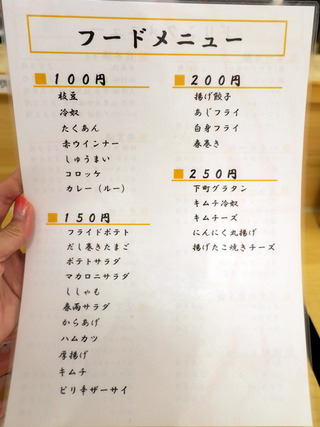 フードメニュー
100円
枝豆
冷奴
たくあん
赤ウインナー
しゅうまい
コロッケ
カレー（ルー）
150円
フライドポテト
だし巻きたまご
ポテトサラダ
マカロニサラダ
ししゃも
春雨サラダ
からあげ
ハムカツ
厚揚げ
キムチ
ピリ辛ザーサイ
200円
揚げ餃子
あじフライ
白身フライ
春巻き
250円
下町グラタン
キムチ冷奴
キムチーズ
にんにく丸揚げ
揚げたこ焼きチーズ